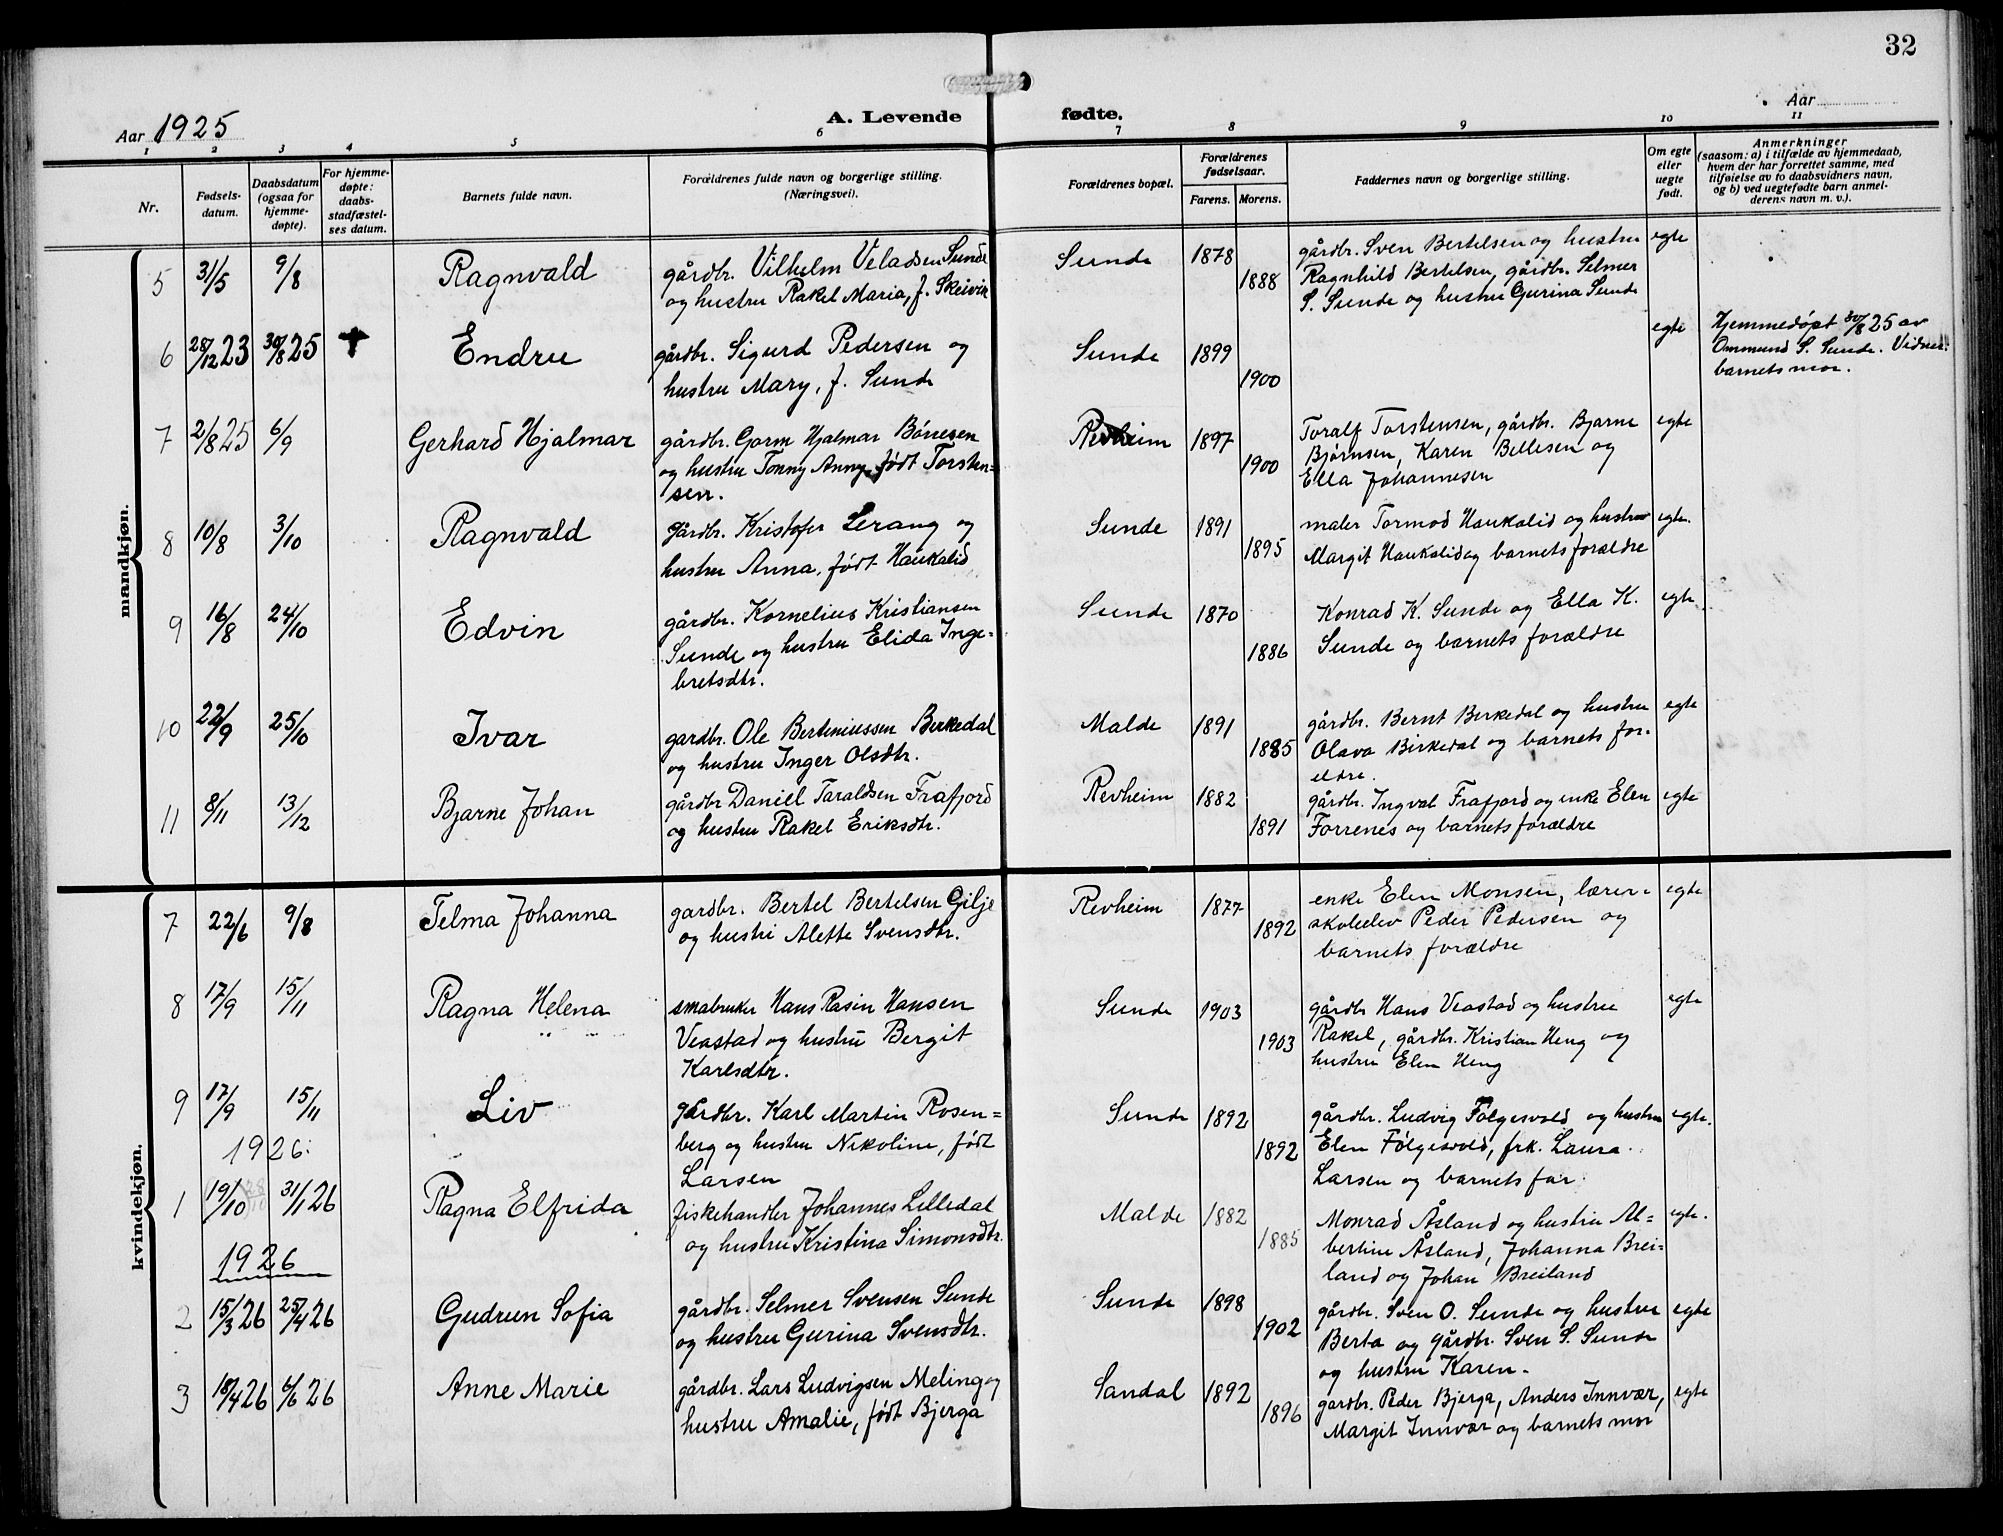 32
Aar 1925
A. Levende fødte.
Aar
1 2 3 4 5 6 7 8 9 10 11
Nr.
Fødsels-
datum.
Daabsdatum
(ogsaa for
hjemme-
døpte).
For hjemme-
døpte:
daabs-
stadfæstel-
ses datum.
Barnets fulde navn.
Forældrenes fulde navn og borgerlige stilling.
(Næringsvei).
Forældrenes bopæl.
Forældrenes
fødselsaar.
Farens. Morens.
Faddernes navn og borgerlige stilling.
Om egte
eller
uegte
født.
Anmerkninger
(saasom: a) i tilfælde av hjemmedaab,
hvem der har forrettet samme, med
tilføielse av to daabsvidners navn,
og b) ved uegtefødte barn anmel-
derens navn m. v.).
mandkjøn.
5 31/5 9/8 Ragnvald
gårdbr. Vilhelm Veladsen Sunde
og hustru Rakel Maria, f. Skeivik
Sunde 1878 1888
gårdbr. Sven Bertelsen og hustru
Ragnhild Bertelsen, gårdbr. Selmer
S. Sunde og hustru Gurina Sunde
egte
6 28/12 23 30/8 25 Endru
gårdbr. Sigurd Pedersen og
hustru Mary, f. Sunde
Sunde 1899 1900
egte
Hjemmedøpt 30/8 25 av
Ommund S. Sunde. Vidner:
barnets mor.
7 2/8 25 6/9 Gerhard Hjalmar
gårdbr. Gorm Hjalmar Bönesen
og hustru Tonny Anny, født Torsten=
sen.
Revheim 1897 1900
Toralf Torstensen, gårdbr. Bjarne
Bjørnsen, Karen Bellesen og
Ella Johannesen
egte
8 10/8 3/10 Ragnvald
gårdbr. Kristofer Lerang og
hustru Anna, født Haukalid
Sunde 1891 1895
maler Tormod Haukalid og hustru
Margit Haukalid og barnets forældre
egte.
9 16/8 24/10 Edvin
gårdbr. Kornelius Kristiansen
Sunde og hustru Elida Inge-
bretsdtr.
Sunde 1870 1886
Konrad K. Sunde og Ella K.
Sunde og barnets forældre
egte
10 22/9 25/10 Ivar
gardbr. Ole Berteniussen Berkedal
og hustru Inger Olsdtr.
Malde 1891 1885
gårdbr. Bernt Berkedal og hustru
Olava Birkedal og barnets for-
eldre.
egte
11 8/11 13/12 Bjarne Johan
gårdbr Daniel Taraldsen Frafjord
og hustru Rakel Eriksdtr.
Revheim 1882 1891
gårdbr. Ingval Frafjord og enke Elen
Forrenes og barnets forældre
egte
kvindekjøn.
7 22/6 9/8 Telma Johanna
gardbr. Bertel Bertelsen Gilje
og hustru Alette Svensdtr.
Revheim 1877 1892
enke Elen Monsen, lærer-
skoleelev Peder Pedersen og
barnets forældre
egte
8 17/9 15/11 Ragna Helena
smabruker Hans Rasin Hansen
Veastad og hustru Bergit
Karlsdtr.
Sunde 1903 1903
gårdbr Hans Veastad og hustru
Rakel, gårdbr. Kristian Heng og
hustru Elen Heng
egte
9 17/9 15/11 Liv
gårdbr. Karl Martin Rosen=
berg og hustru Nikoline, født
Larsen
Sunde 1892 1892
gårdbr. Ludvig Følgesvold og hustru
Elen Følgesvold, frk. Laura
Larsen og barnets far.
egte.
1926:
1 19/10 28/10 31/1 26 Ragna Elfrida
fiskehandler Johannes Lilledal
og hustru Kristina Simonsdtr.
Malde 1882 1885
Monrad Åsland og hustru Al=
bertine Åsland, Johanna Brei=
land og Johan Breiland
egte.
1926
2 15/3 26 25/4 26 Gudrun Sofia
gårdbr. Selmer Svensen Sunde
og hustru Gurina Svensdtr.
Sunde 1898 1902
gårdbr. Sven O. Sunde og hustru
Berta og gårdbr. Sven S. Sunde
og hustru Karen.
egte
3 18/4 26 6/6 26 Anne Marie
gårdbr. Lars Ludvigsen Meling og
hustru Amalie, født Bjerga
Sandal 1892 1896
gardbr. Peder Bjerga, Anders Innvær,
Margit Innvær og barnets mor
egte